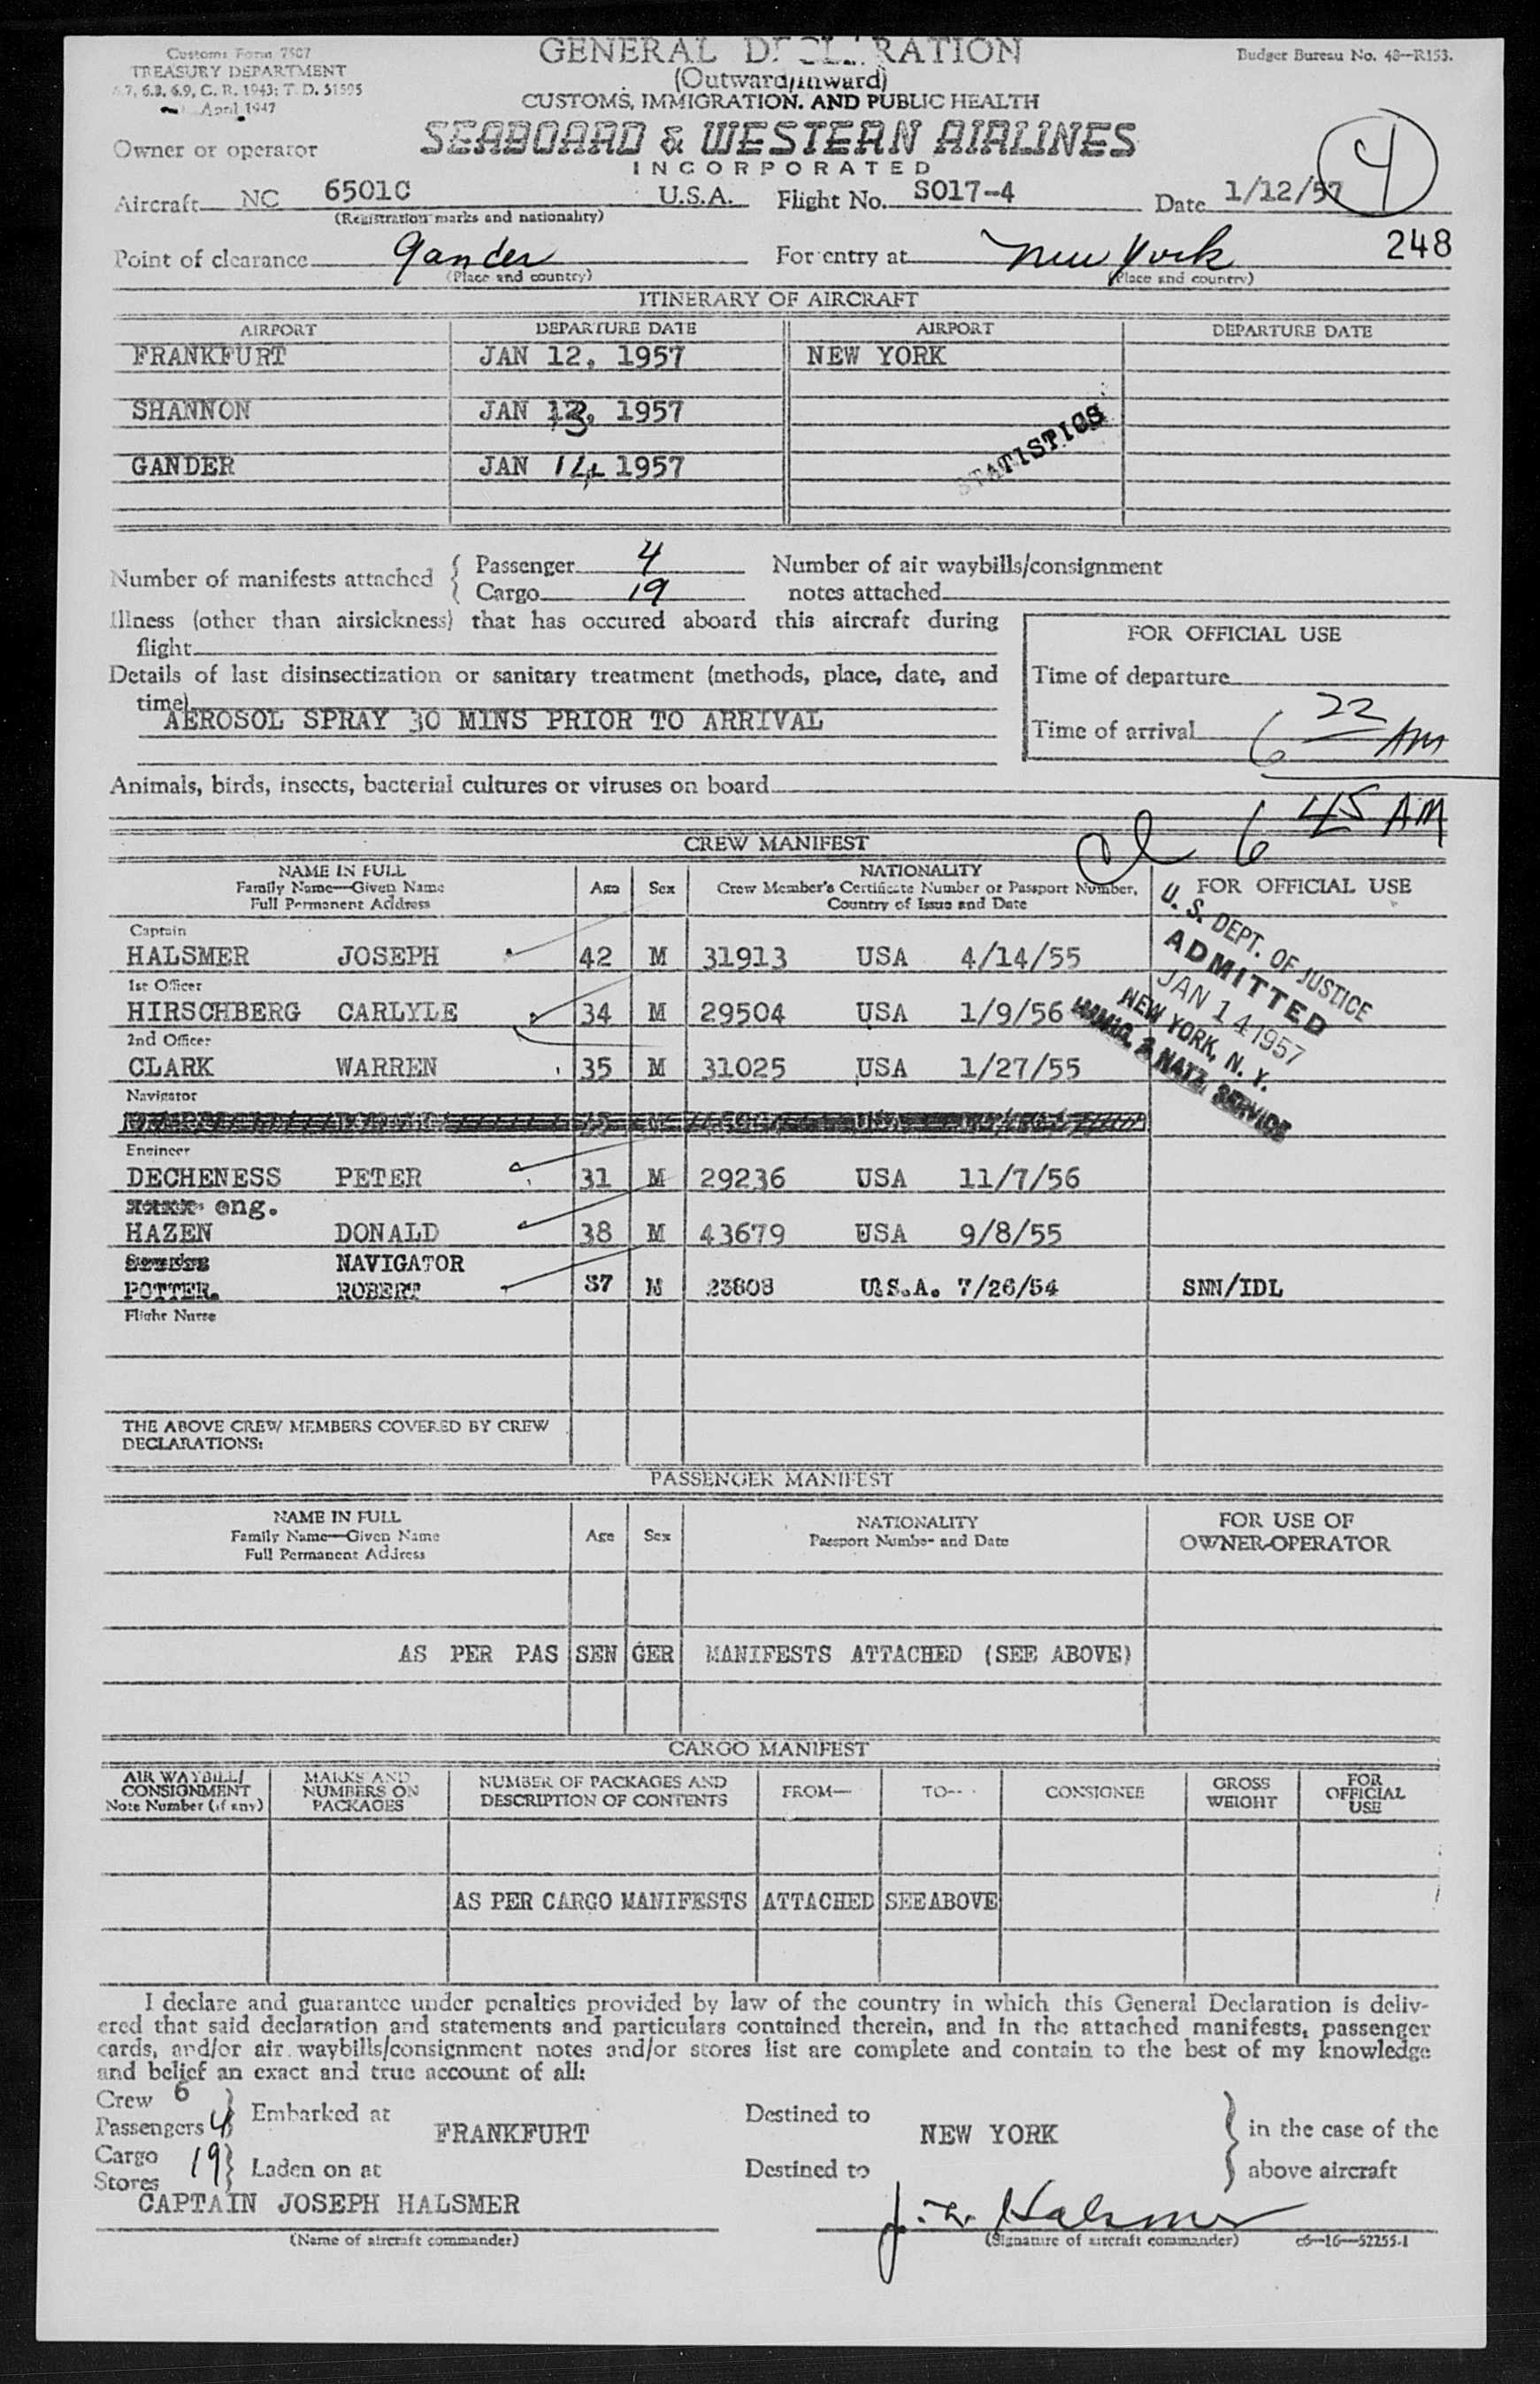 Customs Form 7507
TREASURY DEPARTMENT
6.7, 6.8, 6.9, C. R. 1943; T. D. 51595
April 1947
GENERAL DECLARATION
(Outward/Inward)
CUSTOMS, IMMIGRATION, AND PUBLIC HEALTH
Budget Bureau No. 48—R153.
SEABOARD & WESTERN AIRLINES
INCORPORATED
4
Owner or operator
Aircraft NC 6501C U.S.A. Flight No. S017-4 Date 1/12/57
(Registration marks and nationality)
248
Point of clearance Gander For entry at New York
(Place and country) (Place and country)
ITINERARY OF AIRCRAFT
AIRPORT DEPARTURE DATE AIRPORT DEPARTURE DATE
FRANKFURT JAN 12, 1957 NEW YORK
SHANNON JAN 13, 1957
GANDER JAN 14 1957
STATISTICS
Number of manifests attached { Passenger 4 Number of air waybills/consignment
Cargo 19 notes attached
Illness (other than airsickness) that has occured aboard this aircraft during
flight
Details of last disinsectization or sanitary treatment (methods, place, date, and
time)
AEROSOL SPRAY 30 MINS PRIOR TO ARRIVAL
FOR OFFICIAL USE
Time of departure
Time of arrival 6 22 AM
Animals, birds, insects, bacterial cultures or viruses on board
6 45 AM
CREW MANIFEST
NAME IN FULL
Family Name—Given Name
Full Permanent Address
Age Sex
NATIONALITY
Crew Member's Certificate Number or Passport Number,
Country of Issue and Date
FOR OFFICIAL USE
Captain
HALSMER JOSEPH 42 M 31913 USA 4/14/55
1st Officer
HIRSCHBERG CARLYLE 34 M 29504 USA 1/9/56
2nd Officer
CLARK WARREN 35 M 31025 USA 1/27/55
Navigator
Engineer
DECHENESS PETER 31 M 29236 USA 11/7/56
eng.
HAZEN DONALD 38 M 43679 USA 9/8/55
NAVIGATOR
POTTER. ROBERT 37 M 23808 U.S.A. 7/26/54 SNN/IDL
Flight Nurse
U. S. DEPT. OF JUSTICE
ADMITTED
JAN 14 1957
NEW YORK, N. Y.
IMMIG. & NATZ. SERVICE
THE ABOVE CREW MEMBERS COVERED BY CREW
DECLARATIONS:
PASSENGER MANIFEST
NAME IN FULL
Family Name—Given Name
Full Permanent Address
Age Sex
NATIONALITY
Passport Number and Date
FOR USE OF
OWNER-OPERATOR
AS PER PASSENGER MANIFESTS ATTACHED (SEE ABOVE)
CARGO MANIFEST
AIR WAYBILL/
CONSIGNMENT
Note Number (if any)
MARKS AND
NUMBERS ON
PACKAGES
NUMBER OF PACKAGES AND
DESCRIPTION OF CONTENTS
FROM— TO— CONSIGNEE
GROSS
WEIGHT
FOR
OFFICIAL
USE
AS PER CARGO MANIFESTS ATTACHED SEE ABOVE
I declare and guarantee under penalties provided by law of the country in which this General Declaration is deliv-
ered that said declaration and statements and particulars contained therein, and in the attached manifests, passenger
cards, and/or air waybills/consignment notes and/or stores list are complete and contain to the best of my knowledge
and belief an exact and true account of all:
Crew 6
Passengers 4 } Embarked at FRANKFURT Destined to NEW YORK } in the case of the
Cargo 19
Stores } Laden on at Destined to above aircraft
CAPTAIN JOSEPH HALSMER J. Halsmer
(Name of aircraft commander) (Signature of aircraft commander) c6—16—52255-1